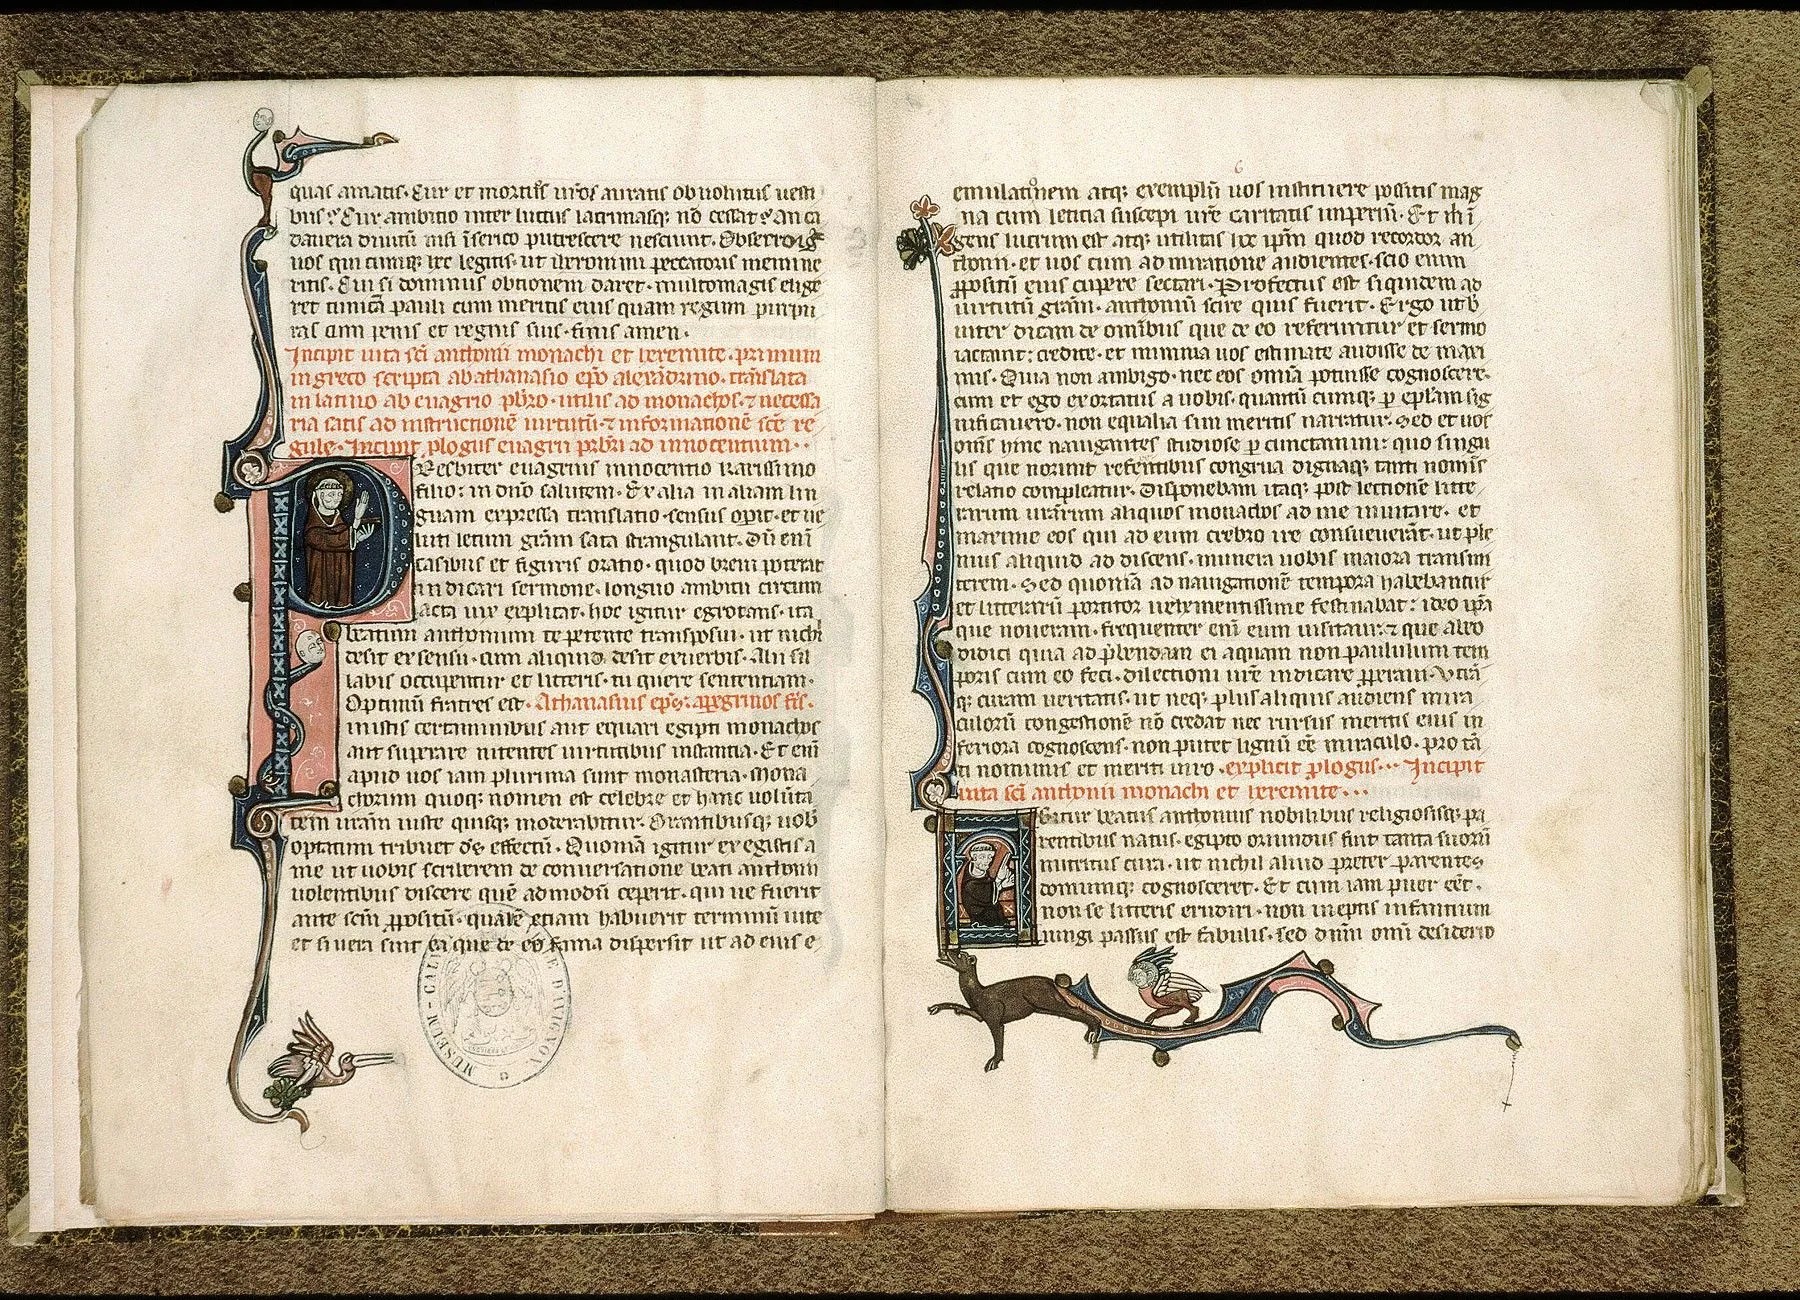 quas amatis. Cur et mortuos uros auratis obuoluitis uesti
bus? Cur ambitio inter luctus lacrimasq; nō cessat? An ca
dauera diuitū nisi ī serico putrescere nesciunt. Obsecro
uos quicumq; hec legitis. ut ieronimi peccatoris memine
ritis. Cui si dominus obtionem daret. multo magis elige
ret tunicā pauli cum meritis eius quam regum purpu
ras cum penis et regnis suis. finis amen.
Incipit uita sci anthonii monachi et heremite. primum
in greco scripta ab athanasio epō alexādrino. trāslata
in latino ab euagrio pbro. utilis ad monachos. ⁊ necessa
ria satis ad instructionē uirtutū. ⁊ informationē scē re
gule. Incipit plogus euagrii prbri ad innocentium.
PResbiter euagrius innocentio karissimo
filio: in dno salutem. Ex alia in aliam lin
guam expressa translatio. sensus opit. et ue
luti letum grām sata strangulant. Dū enī
casibus et figuris oratio. quod breui poterat
indicari sermone. longuo ambitu circum
acta uix explicat. hoc igitur egrotans. ita
beatum anthonium te petente transposui. ut nichl
desit ex sensu. cum aliquid desit ex uerbis. Alii sil
labis occupentur et litteris. tu quere sententiam.
Optimū fratres est. Athanasius epūs. apegrinos frs.
inistis certamnibus aut equari egipti monachos
aut superare nitentes uirtutibus instantia. Et enī
apud uos iam plurima sunt monasteria. Mona
chorum quoq; nomen est celebre et hanc uolūta
tem urām iuste quisq; moderabitur. Orantibusq; uob
optatum tribuet ds effectū. Quoniā igitur exegistis a
me ut uobis scriberem de conuersatione beati anthonii
uolentibus discere quē admodū ceperit. qui ue fuerit
ante scm ppositū. qualē etiam habuerit terminū uite
et si uera sint ea que de eo fama dispersit ut ad eius e
MUSEUM-CALVET D'AVIGNON
6
emulationem atq; exemplū uos instituere positis mag
na cum leticia suscepi ure caritatis imperiū. Et m ī
gens lucrum est atq; utilitas hec ipm quod recordor an
thonii. et uos cum admiratione audientes. scio enim
ppositū eius cupere sectari. Profectus est siquidem ad
uirtutū grām. anthoniū scire quis fuerit. Ergo ut b
uiter dicam de omībus que de eo referuntur et sermo
iactauit: credite. et minima uos estimate audisse de maxi
mis. Quia non ambigo. nec eos omīa potuisse cognoscere.
cum et ego exortatus a uobis. quantū cumq; p eplam sig
nificauero. non equalia sim meritis narratur. Sed et uos
oms hinc nauigantes studiose p cunctamini: quo singu
lis que norunt referētibus congrua dignaq; tanti nomīs
relatio compleatur. Disponebam itaq; post lectionē litte
rarum urārum aliquos monachos ad me inuitare. et
maxime eos qui ad eum crebro ire consueuerāt. ut ple
nius aliquid ad discens. munera uobis maiora transmi
terem. Sed quoniā ad nauigationē tempora habebantur
et litterarū portitor uehementissime festinabat: ideo ipa
que noueram. frequenter enī eum uisitaui: ⁊ que ab eo
didici quia ad pbendam ei aquam non paululum tem
poris cum eo feci. dilectioni ure indicare pperaui. Utrā
q; curam ueritatis. ut neq; plus aliquis audiens mira
culorū congestionē nō credat nec rursus meritis eius in
feriora cognoscens. non putet lignū eē miraculo. pro tā
ti nominis et meriti uiro. explicit plogus. Incipit
uita sci anthonii monachi et heremite.
Igitur beatus anthonius nobilibus religiosisq; pa
rentibus natus. egipto oriundus fuit tanta suorū
nutritus cura. ut nichil aliud preter parentes
domumq; cognosceret. Et cum iam puer eēt.
non se litteris erudiri. non ineptis infantium
iungi passus est fabulis. sed dnm omi desiderio